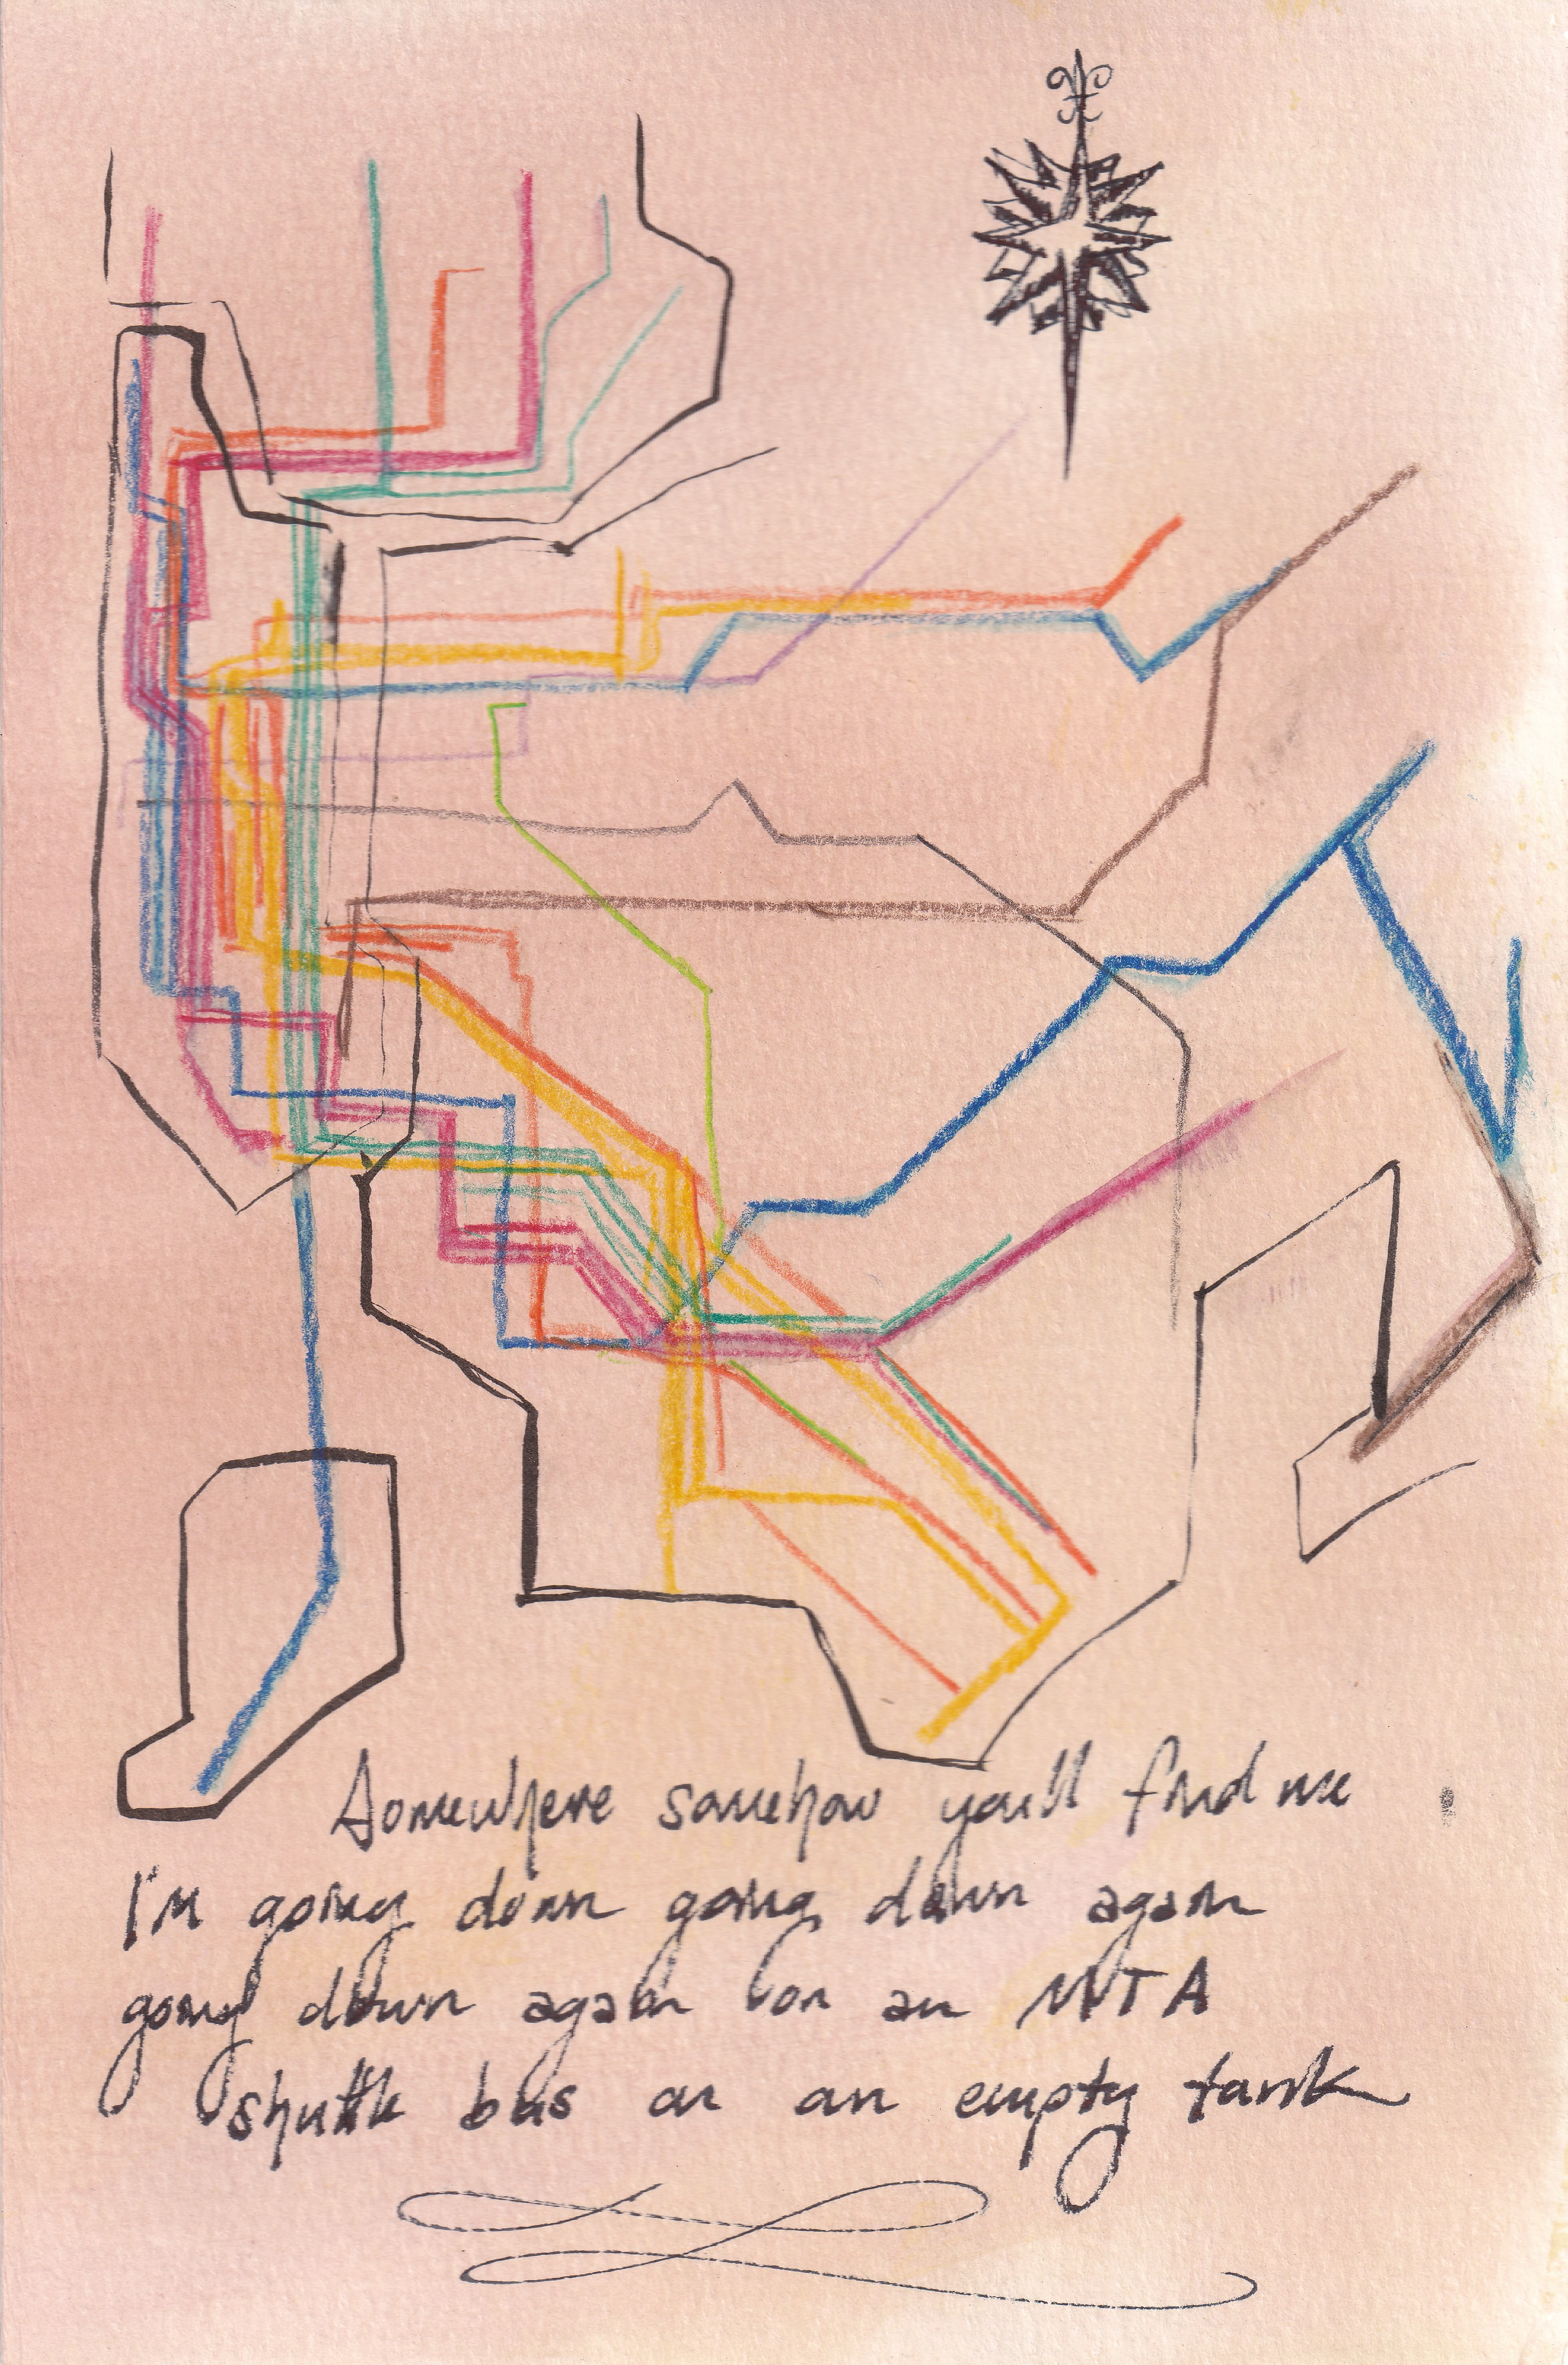 Somewhere somehow you'll find me
I'm going down going down again
going down again on an MTA
shuttle bus on an empty tank